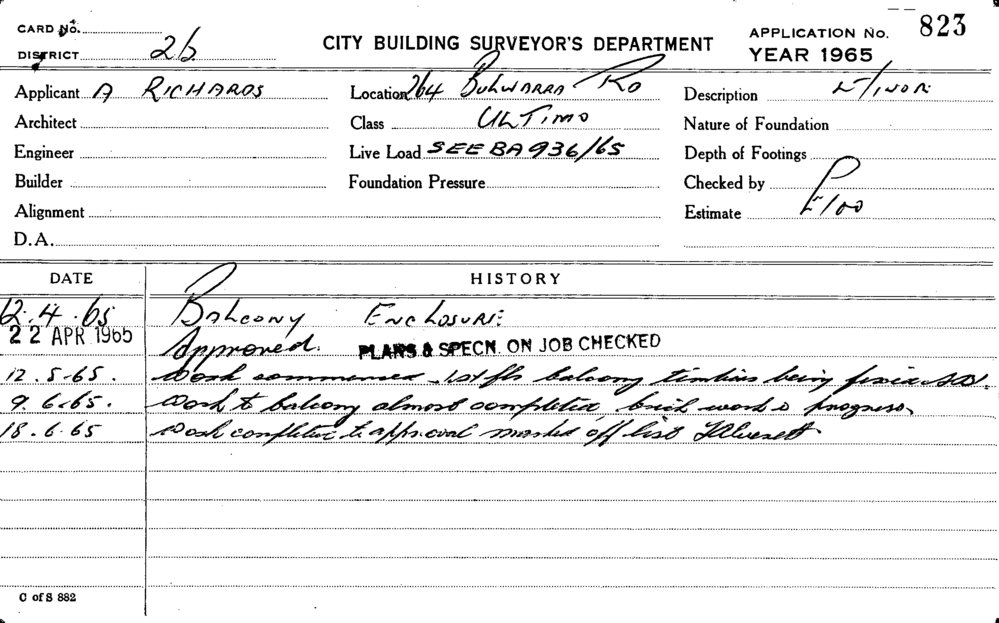 CARD No.
DISTRICT 26
CITY BUILDING SURVEYOR'S DEPARTMENT
APPLICATION No. 823
YEAR 1965
Applicant A RICHARDS
Location 264 BULWARRA RD
Description
Architect
Class ULTIMO
Nature of Foundation
Engineer
Live Load SEE BA 936/65
Depth of Footings
Builder
Foundation Pressure
Checked by
Alignment
Estimate £100
D.A.
DATE HISTORY
12.4.65 BALCONY ENCLOSURE
22 APR 1965 Approved. PLANS & SPECN. ON JOB CHECKED
12.5.65. Work commenced 1st flr balcony timbers being
9.6.65. Work to balcony almost completed, brick work progress.
18.6.65 Work completed to approval marked off list
C of S 882